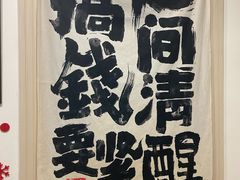 人间清醒
搞錢要紧